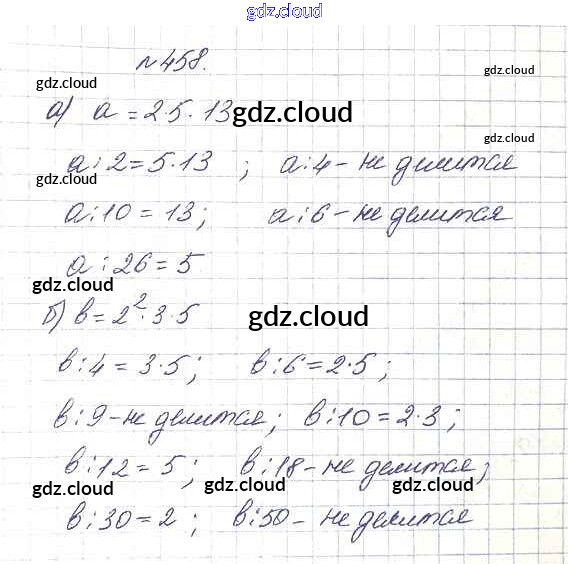 gdz.cloud
№458.
gdz.cloud gdz.cloud
а) a = 2·5·13 gdz.cloud
gdz.cloud
a:2=5·13 ; a:4 - не делится
gdz.cloud
a:10 = 13; a:6 - не делится
a:26=5
gdz.cloud
б) в = 2²·3·5 gdz.cloud
в:4 = 3·5; в:6=2·5;
в:9 - не делится; в:10=2·3;
в:12 = 5; в:18 - не делится;
gdz.cloud gdz.cloud gdz.cloud
в:30=2; в:50 - не делится
gdz.cloud